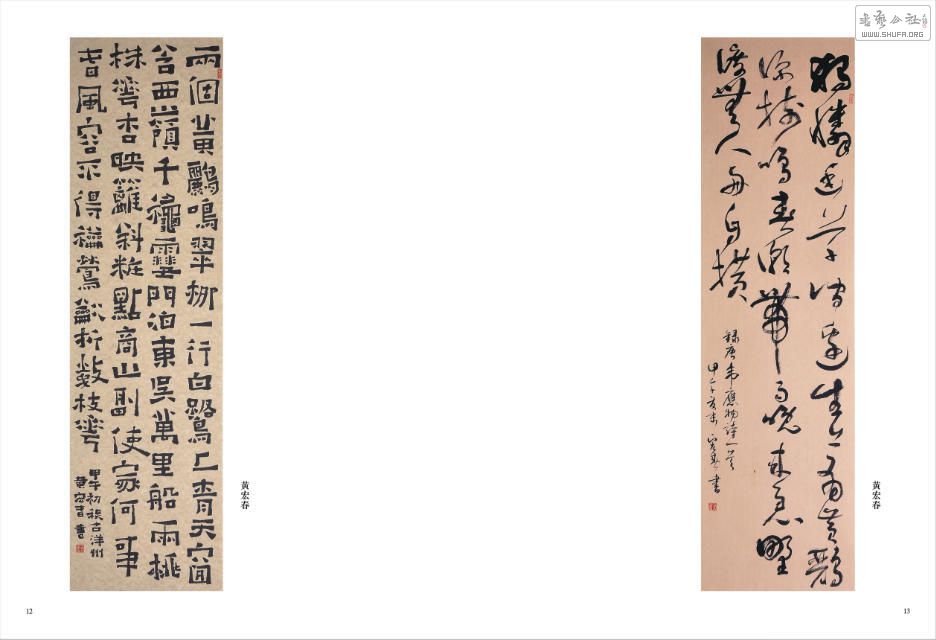 兩個黃鸝鳴翠柳一行白鷺上青天窗
含西嶺千秋雪門泊東吳萬里船兩桃
株花杏映籬斜粧點商山副使家何事
春風容不得和鶯吹折數枝花
甲午初秋古洋州
黃宏春書
黄宏春
12
書藝公社
WWW.SHUFA.ORG
獨憐幽草澗邊生上有黃鸝
深樹鳴春潮帶雨晚來急野
渡無人舟自橫
錄唐韋應物詩一首
甲午夏末宏春書
黄宏春
13